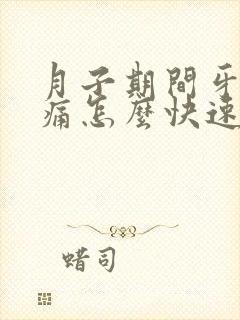 月子期間牙
痛怎麼快速
蜡司